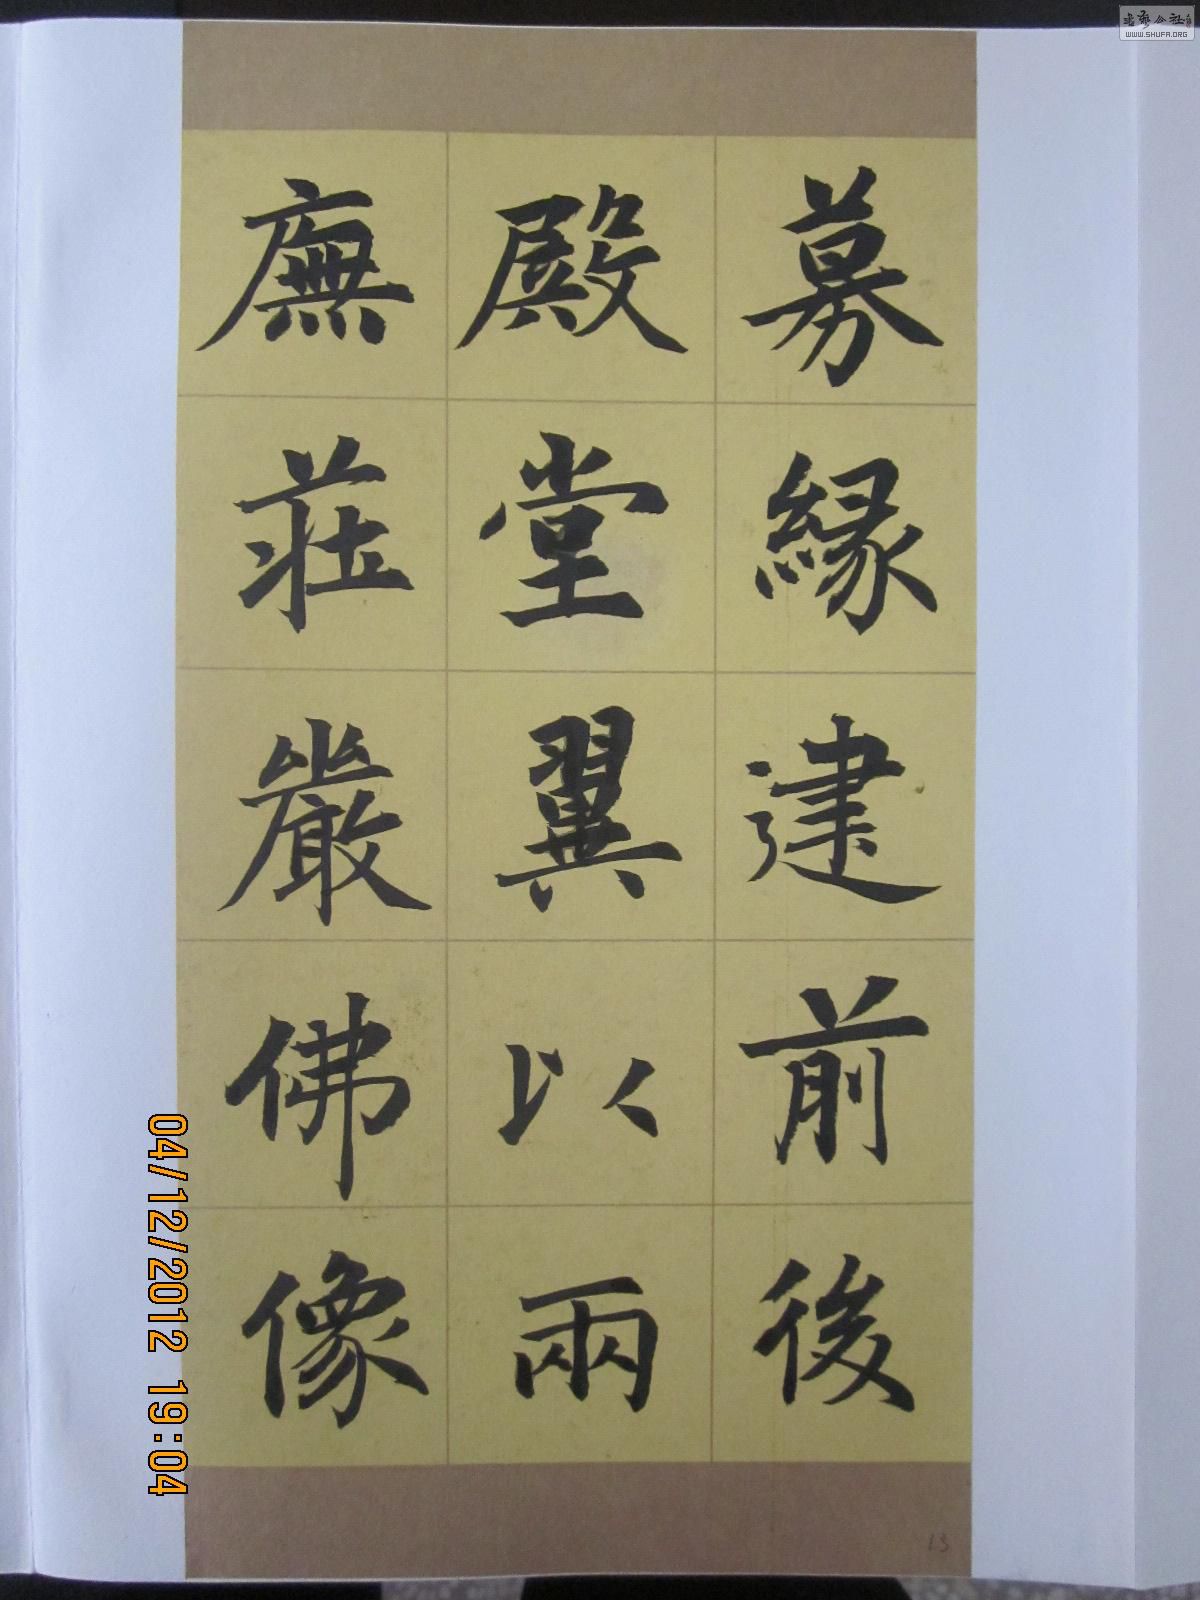 募緣建前後
殿堂翼以兩
廡莊嚴佛像
13
04/12/2012 19:04
书艺公社
WWW.SHUFA.ORG